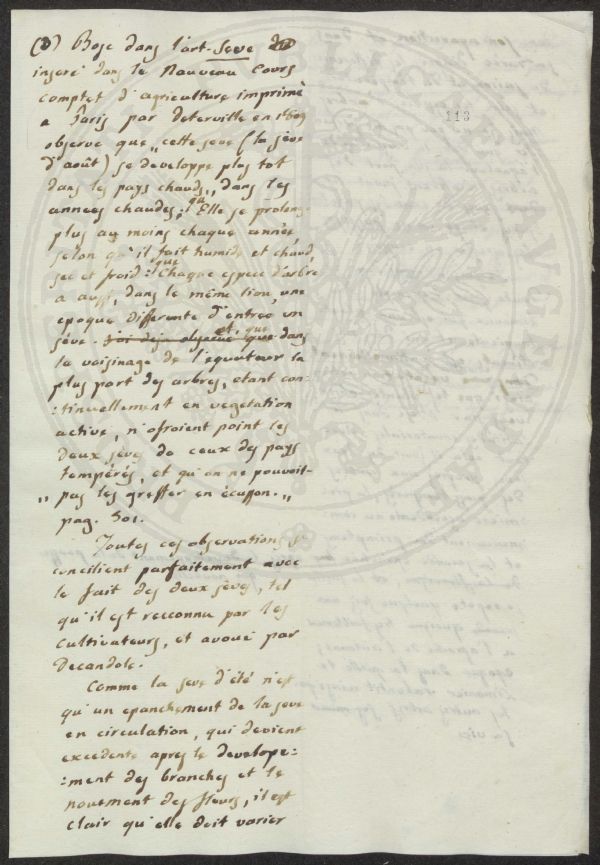 113
(3) Bosc dans l'art. Seve
inseré dans le Nouveau Cours
complet d'agriculture imprimè
a Paris par deterville en 1809
observe que „cette seve (la sève
d'août) se developpe plus tot
dans les pays chauds„, dans les
années chaudes; qu Elle se prolonge
plus au moins chaque année,
selon qu'il fait humide et chaud,
sec et froid: que Chaque espece d'arbre
a aussi, dans le même lieu, une
epoque differente d'entrer en
sève. J'ai deja observé que et, que dans
la voisinage de l'equateur la
plus part des arbres, etant con:
:tinuellement en vegetation
active, n'ofroient point les
deux sèves de ceux des pays
tempérés, et qu'on ne pouvoit
„ pas les greffer en écusson.„
pag. 501.
Toutes ces observations se
concilient parfaitement avec
le fait des deux sèves, tel
qu'il est reconnu par les
cultivateurs, et avoué par
Decandole.
Comme la seve d'été n'est
qu'un epanchement de la seve
en circulation, qui devient
excedente apres le develope:
:ment des branches et le
nouement des fleurs, il est
clair qu'elle doit varier